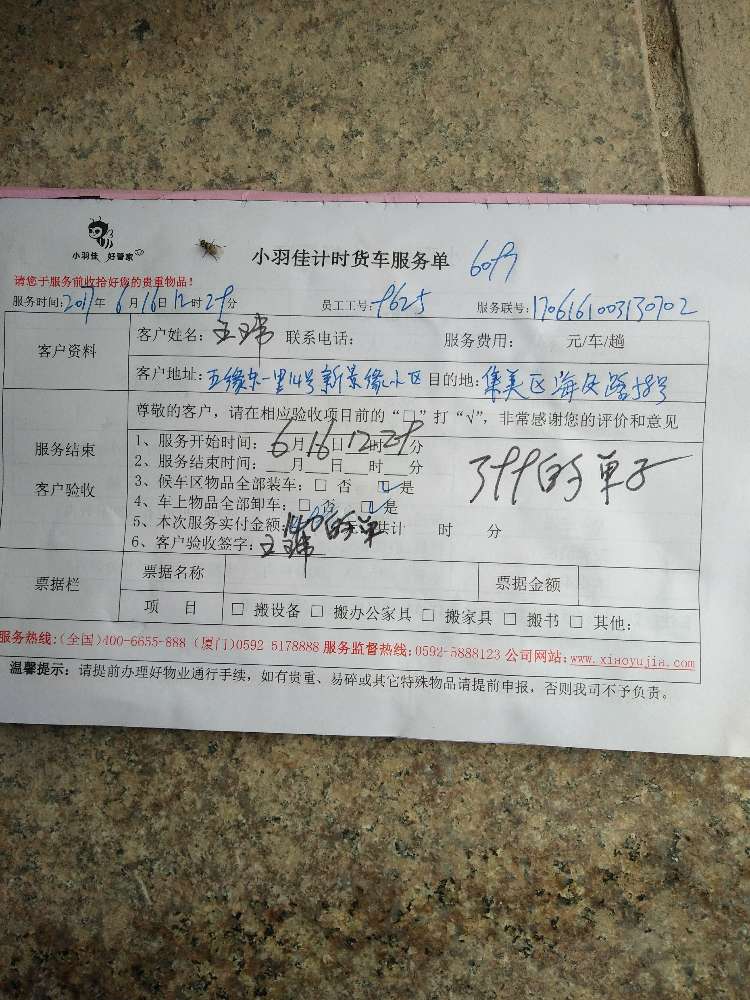 小羽佳 好管家
小羽佳计时货车服务单
请您于服务前收拾好您的贵重物品！
服务时间:2017年6月16日12时29分 员工工号:9625 服务联号:1706161003130702
客户资料
客户姓名: 王玮 联系电话: 服务费用: 元/车/趟
客户地址: 五缘东一里14号新景缘小区 目的地: 集美区海凤路58号
服务结束
客户验收
尊敬的客户，请在相应验收项目前的“□”打“√”，非常感谢您的评价和意见
1、服务开始时间: 6月16日12时29分
2、服务结束时间: __月__日__时__分
3、候车区物品全部装车: □ 否 ☑是
4、车上物品全部卸车: □ 否 ☑是
5、本次服务实付金额: 共计 时 分
6、客户验收签字: 王玮
的单子
票据栏
票据名称 票据金额
项 目 □ 搬设备 □ 搬办公家具 □ 搬家具 □ 搬书 □ 其他:
服务热线:(全国)400-6655-888 (厦门)0592 5178888 服务监督热线:0592-5888123 公司网站:www.xiaoyujia.com
温馨提示: 请提前办理好物业通行手续，如有贵重、易碎或其它特殊物品请提前申报，否则我司不予负责。